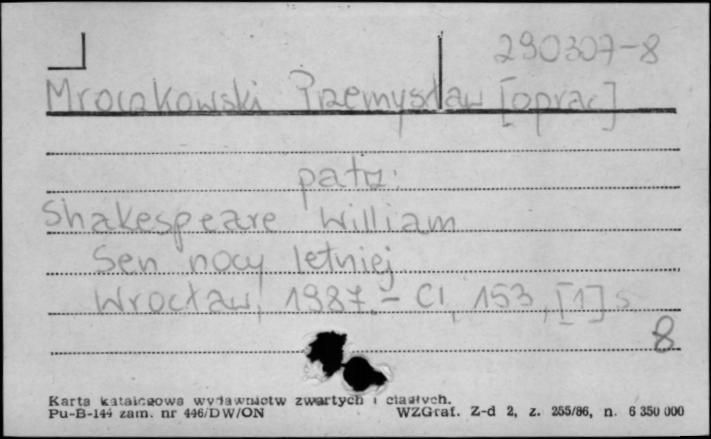 290307-8
Mroczkowski Przemysław [oprac]
patrz:
Shakespeare William
Sen nocy letniej.
Wrocław, 1987. - CI, 153, [1] s
8
Karta katalogowa wydawnictw zwartych i ciągłych.
Pu-B-144 zam. nr 446/DW/ON WZGraf. Z-d 2, z. 255/86, n. 6 350 000